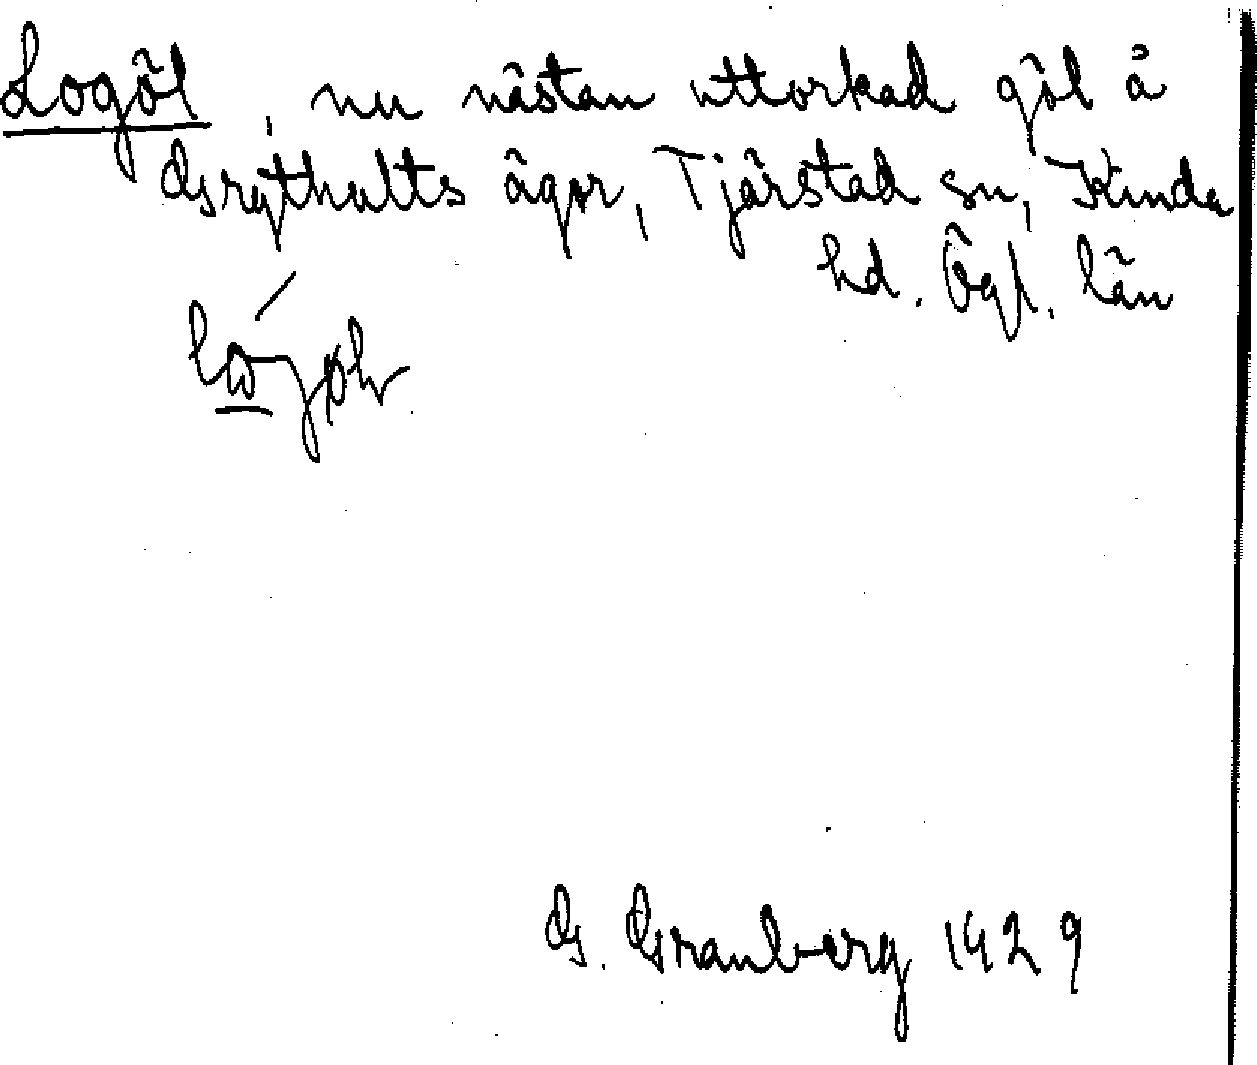 Logöl, nu nästan uttorkad göl å
Grythults ägor, Tjärstad sn, Kinda
hd. Ögl. län
G. Granberg 1929